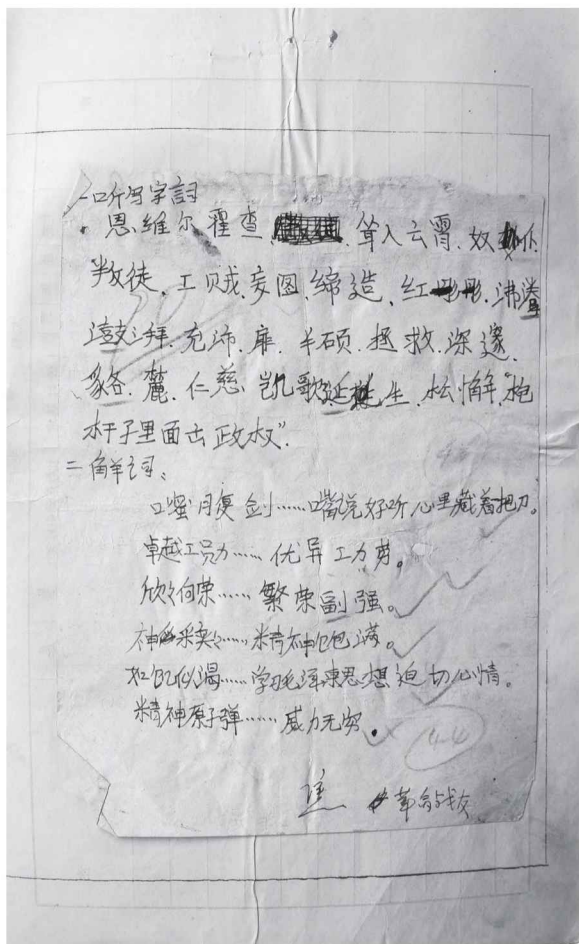 一 听写字词
恩维尔 霍查、耸入云霄、奴仆
叛徒、工贼、妄图、缔造、红彤彤、沸腾
澎拜、充沛、雇、丰硕、拯救、深邃、
貉、麓、仁慈、凯歌、诞生、松懈、枪
杆子里面出政权"。
二 解词、
口蜜腹剑……嘴说好听心里藏着把刀。
卓越功勋……优异工力劳。
欣欣向荣……繁荣副强。
神采奕奕……精神饱满。
如饥似渴……学习毛泽东思想迫切心情。
精神原子弹……威力无穷。
44
革命战友